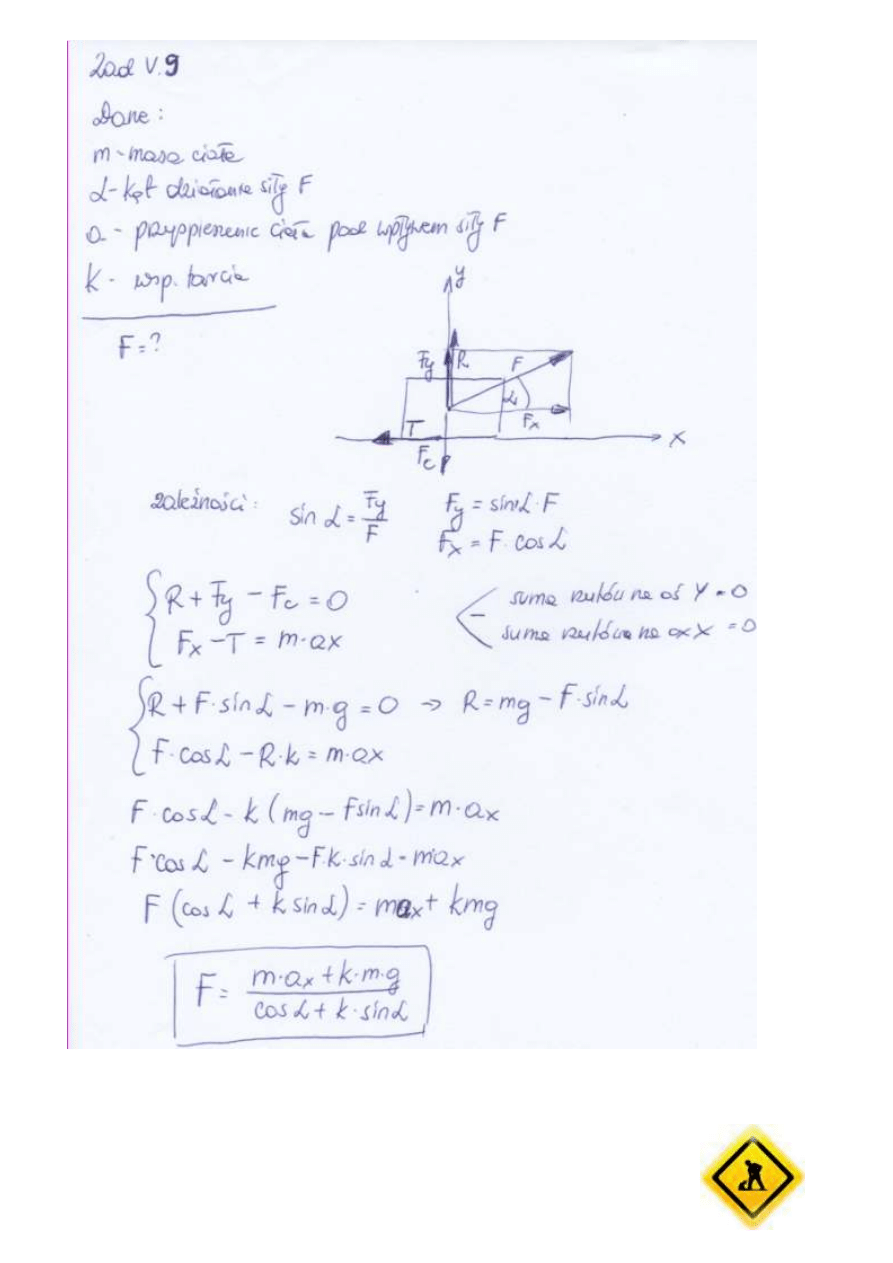 Zad V.9
Dane:
m - masa ciała
α - kąt działania siły F
a - przyspieszenie ciała pod wpływem siły F
k - wsp. tarcia
F=?
y
Fy R F
α
Fx
T
Fc
x
zależności: sin α = Fy/F Fy = sinα·F
Fx = F·cosα
R + Fy - Fc = 0
Fx - T = m·ax
suma rzutów na oś Y = 0
suma rzutów na oś X = 0
R + F·sinα - m·g = 0 → R = mg - F·sinα
F·cosα - R·k = m·ax
F·cosα - k(mg - Fsinα) = m·ax
F·cosα - kmg - F·k·sinα = m·ax
F(cosα + k sinα) = max + kmg
F = (m·ax + k·m·g)/(cosα + k·sinα)